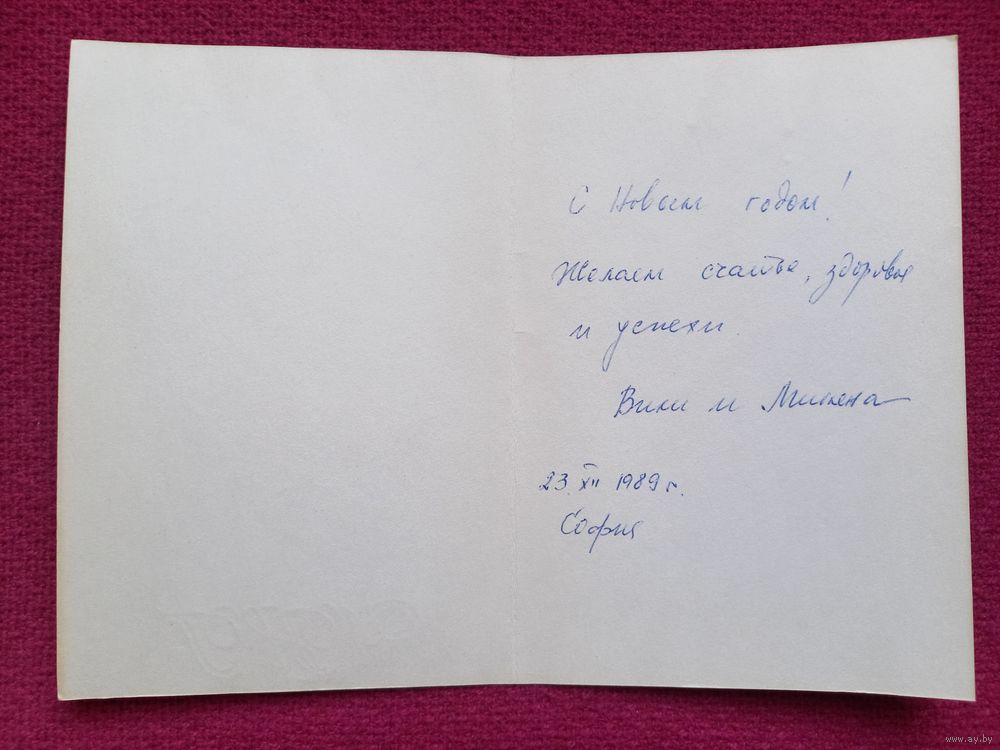 С Новым годом!
Желаем счастье, здоровье
и успехи.
Вили и Милена
23. XII 1989 г.
София
www.ay.by